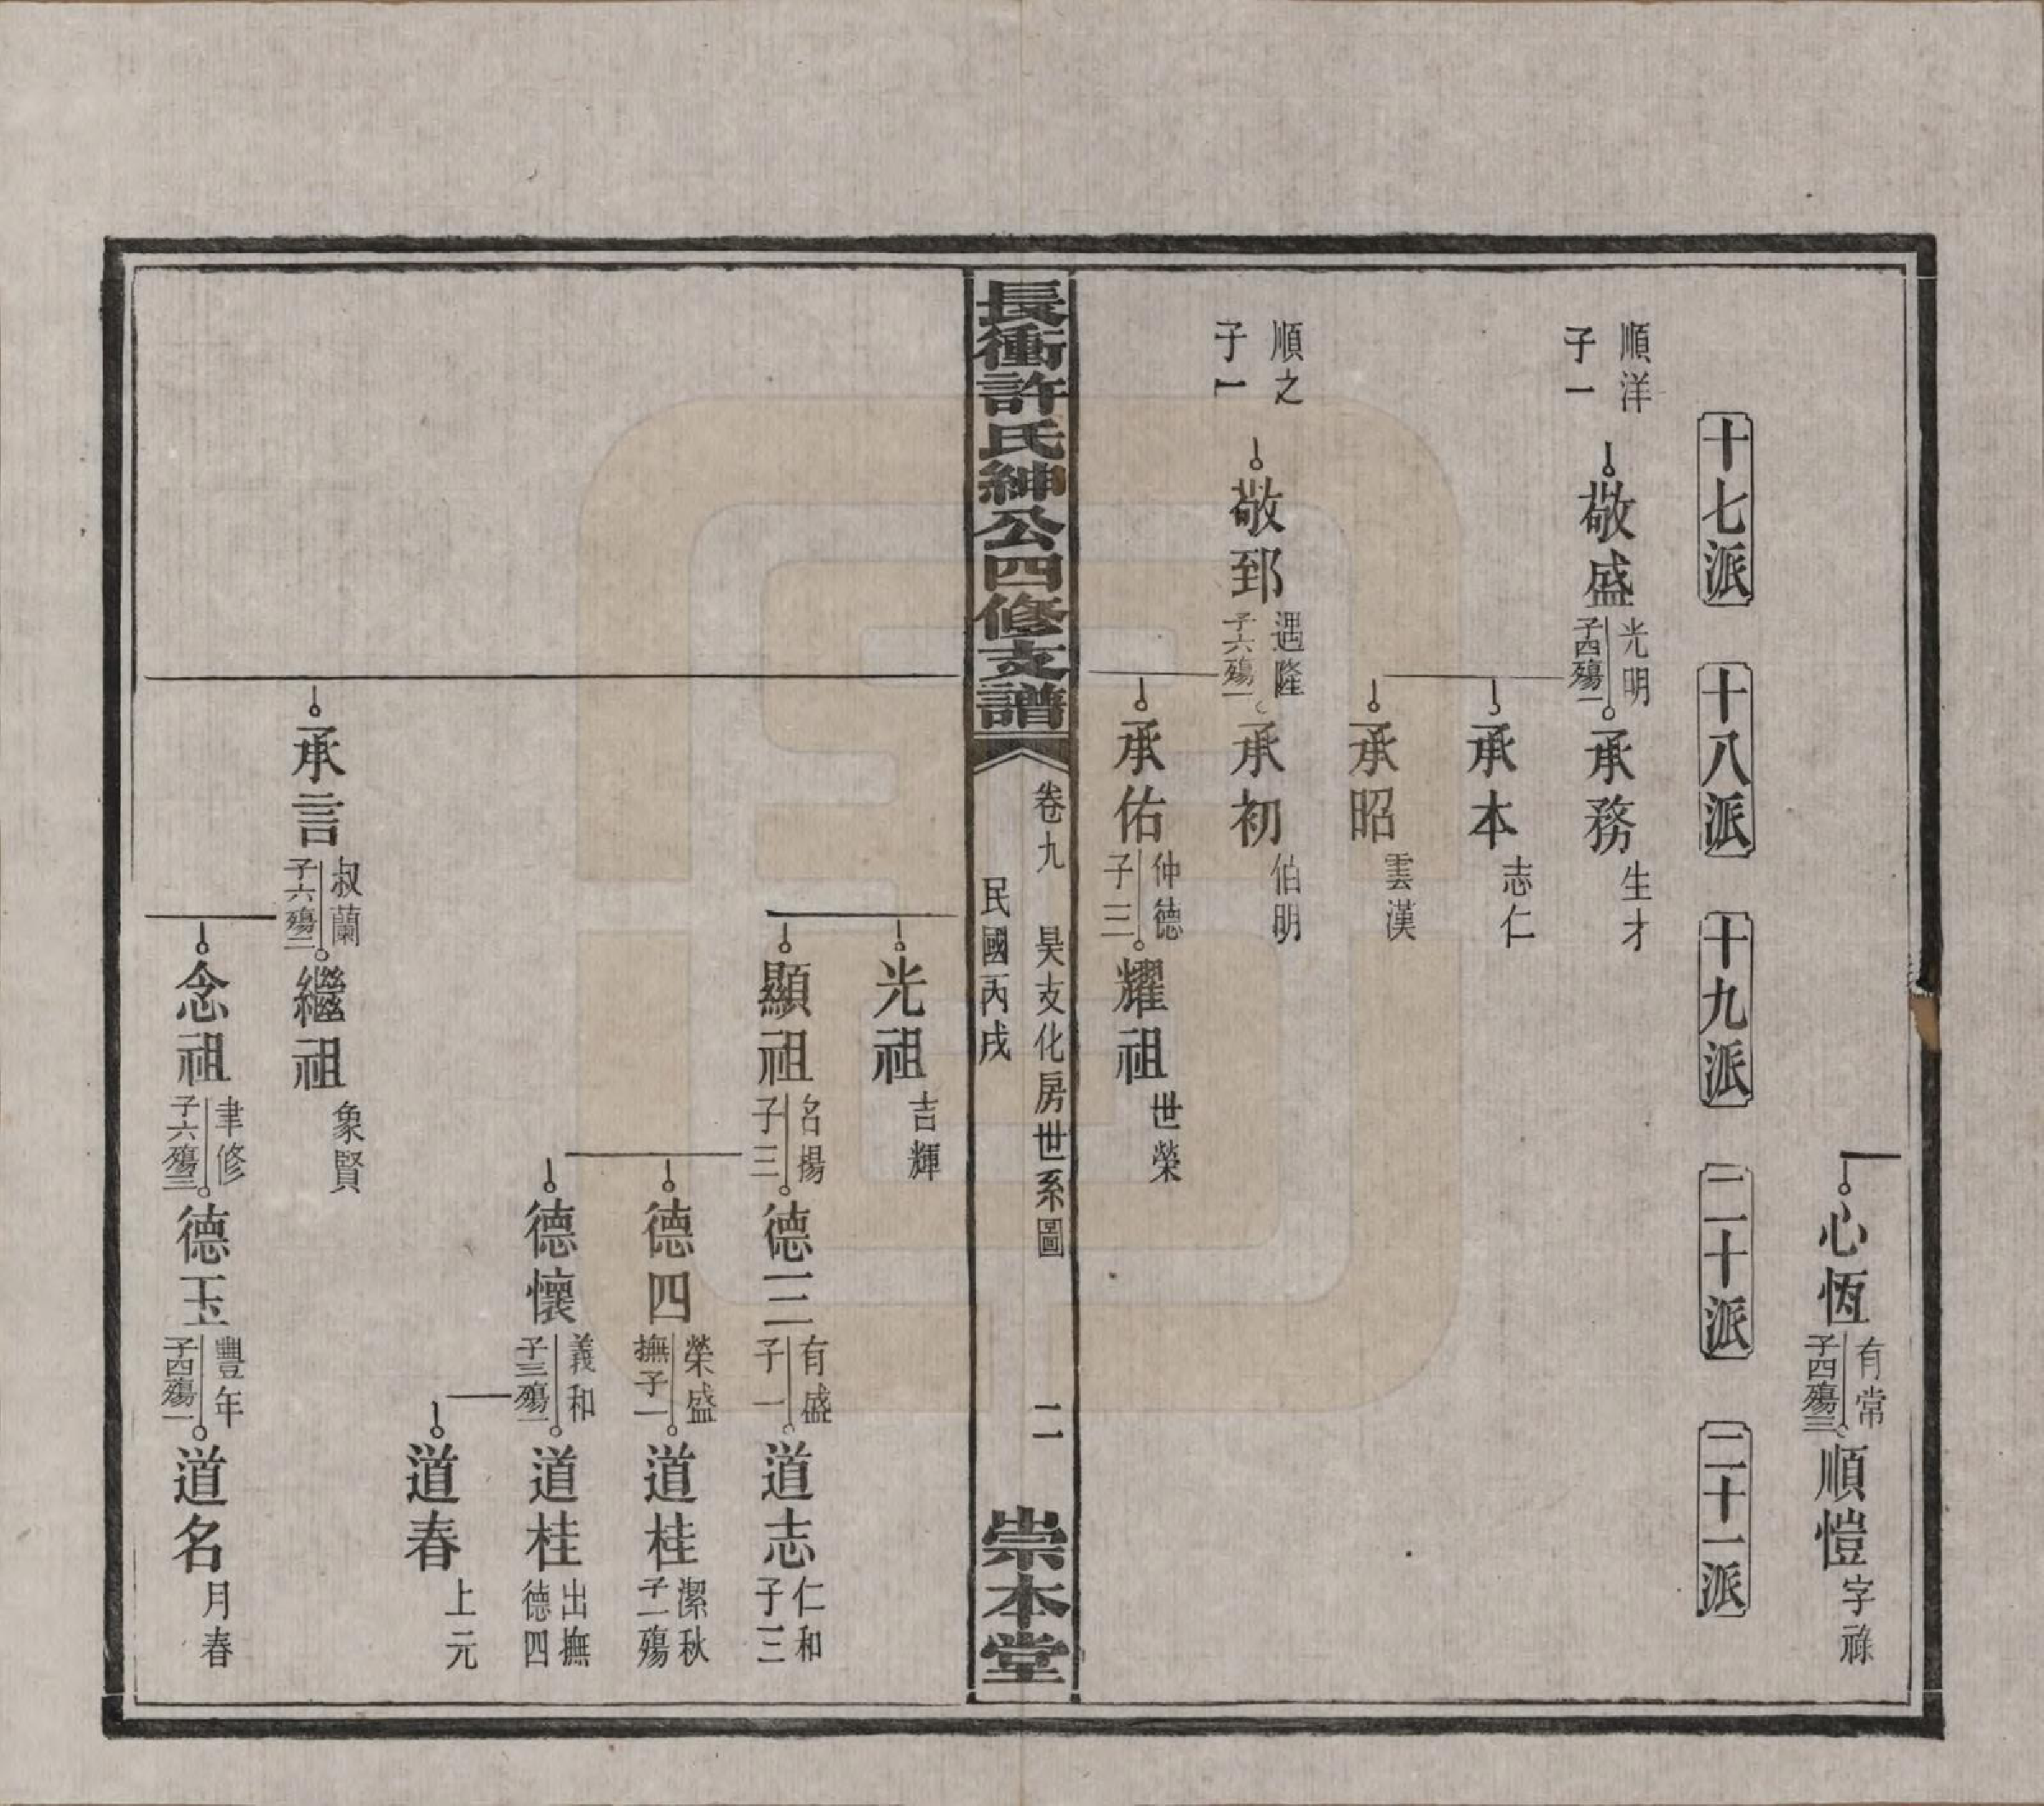 心恆
有常
子四殤三
順愷
字祿
十七派
十八派
十九派
二十派
二十一派
順洋
子一
敬盛
光明
子四殤一
承務
生才
承本
志仁
承昭
雲漢
順之
子一
敬郅
遇隆
子六殤一
承初
伯明
承佑
仲德
子三
耀祖
世榮
長衝許氏紳公四修支譜
卷九
昊支化房世系圖
二
民國丙戌
崇本堂
光祖
吉輝
顯祖
名揚
子三
德三
有盛
子一
道志
仁和
子三
德四
榮盛
撫子一
道桂
潔秋
子一殤
德懷
義和
子三殤一
道桂
出撫
德四
道春
上元
承言
叔蘭
子六殤二
繼祖
象賢
念祖
聿修
子六殤三
德玉
豐年
子四殤一
道名
月春